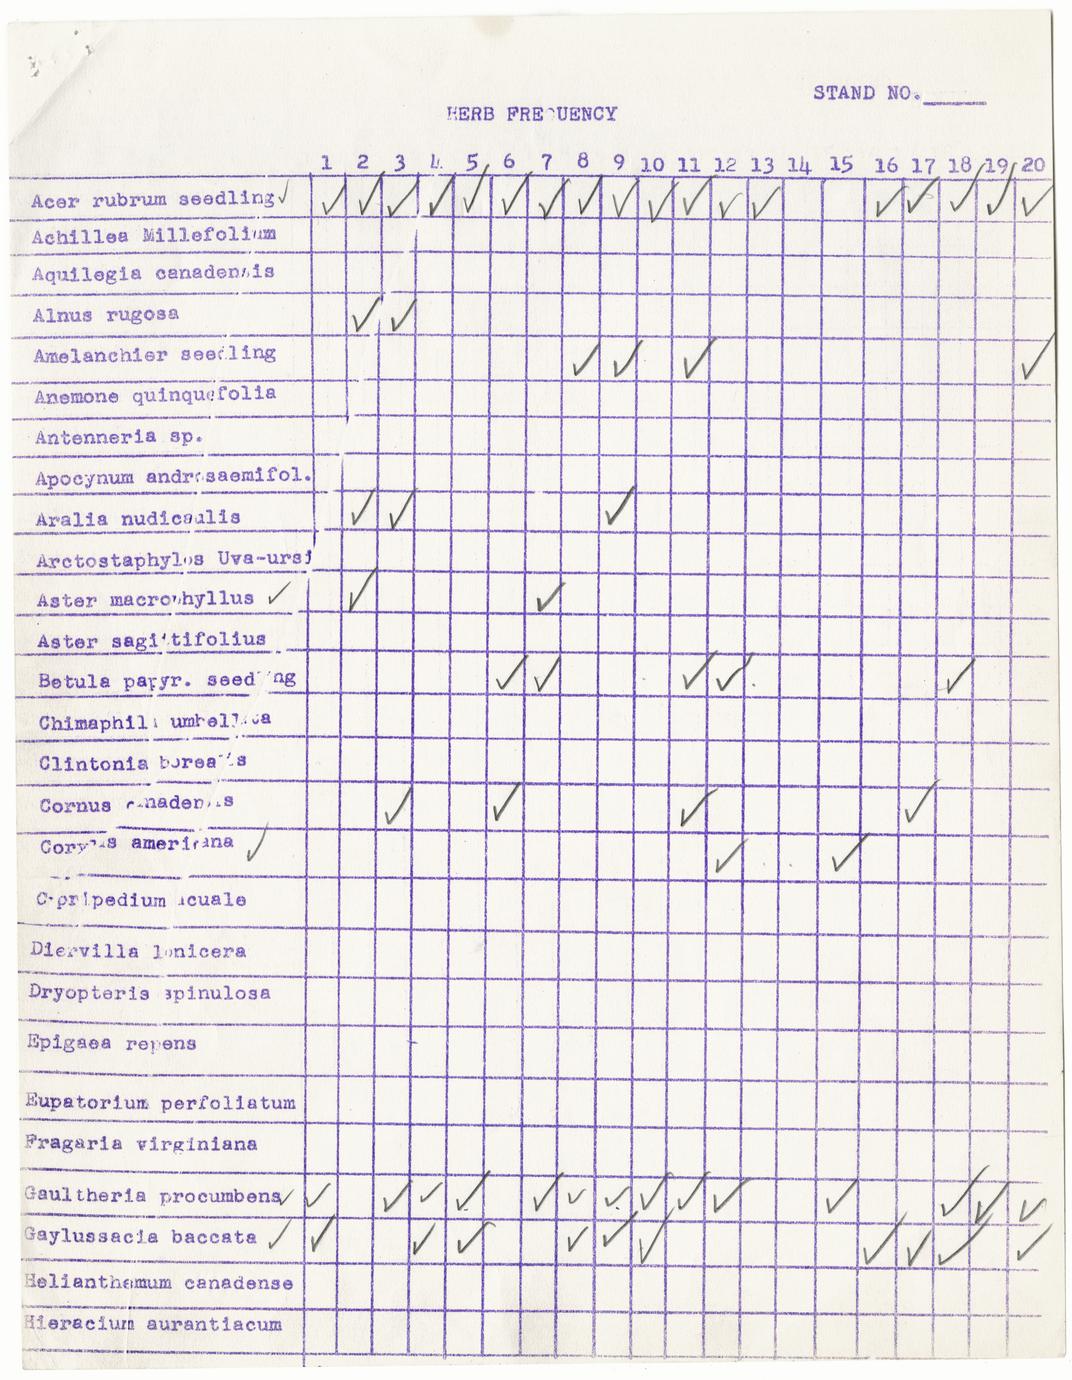 STAND NO.
HERB FRE UENCY
1 2 3 4 5 6 7 8 9 10 11 12 13 14 15 16 17 18 19 20
Acer rubrum seedling ✓ ✓ ✓ ✓ ✓ ✓ ✓ ✓ ✓ ✓ ✓ ✓ ✓ ✓ ✓ ✓ ✓ ✓ ✓
Achillea Millefolium
Aquilegia canadensis
Alnus rugosa ✓ ✓
Amelanchier seedling ✓ ✓ ✓ ✓
Anemone quinquefolia
Antenneria sp.
Apocynum androsaemifol.
Aralia nudicaulis ✓ ✓ ✓
Arctostaphylos Uva-ursi
Aster macrophyllus ✓ ✓ ✓
Aster sagittifolius
Betula papyr. seedling ✓ ✓ ✓ ✓ ✓
Chimaphila umbellata
Clintonia borealis
Cornus canadensis ✓ ✓ ✓ ✓
Corylus americana ✓ ✓ ✓
Cypripedium acuale
Diervilla lonicera
Dryopteris spinulosa
Epigaea repens
Eupatorium perfoliatum
Fragaria virginiana
Gaultheria procumbens ✓ ✓ ✓ ✓ ✓ ✓ ✓ ✓ ✓ ✓ ✓ ✓ ✓ ✓ ✓
Gaylussacia baccata ✓ ✓ ✓ ✓ ✓ ✓ ✓ ✓ ✓ ✓ ✓
Helianthemum canadense
Hieracium aurantiacum